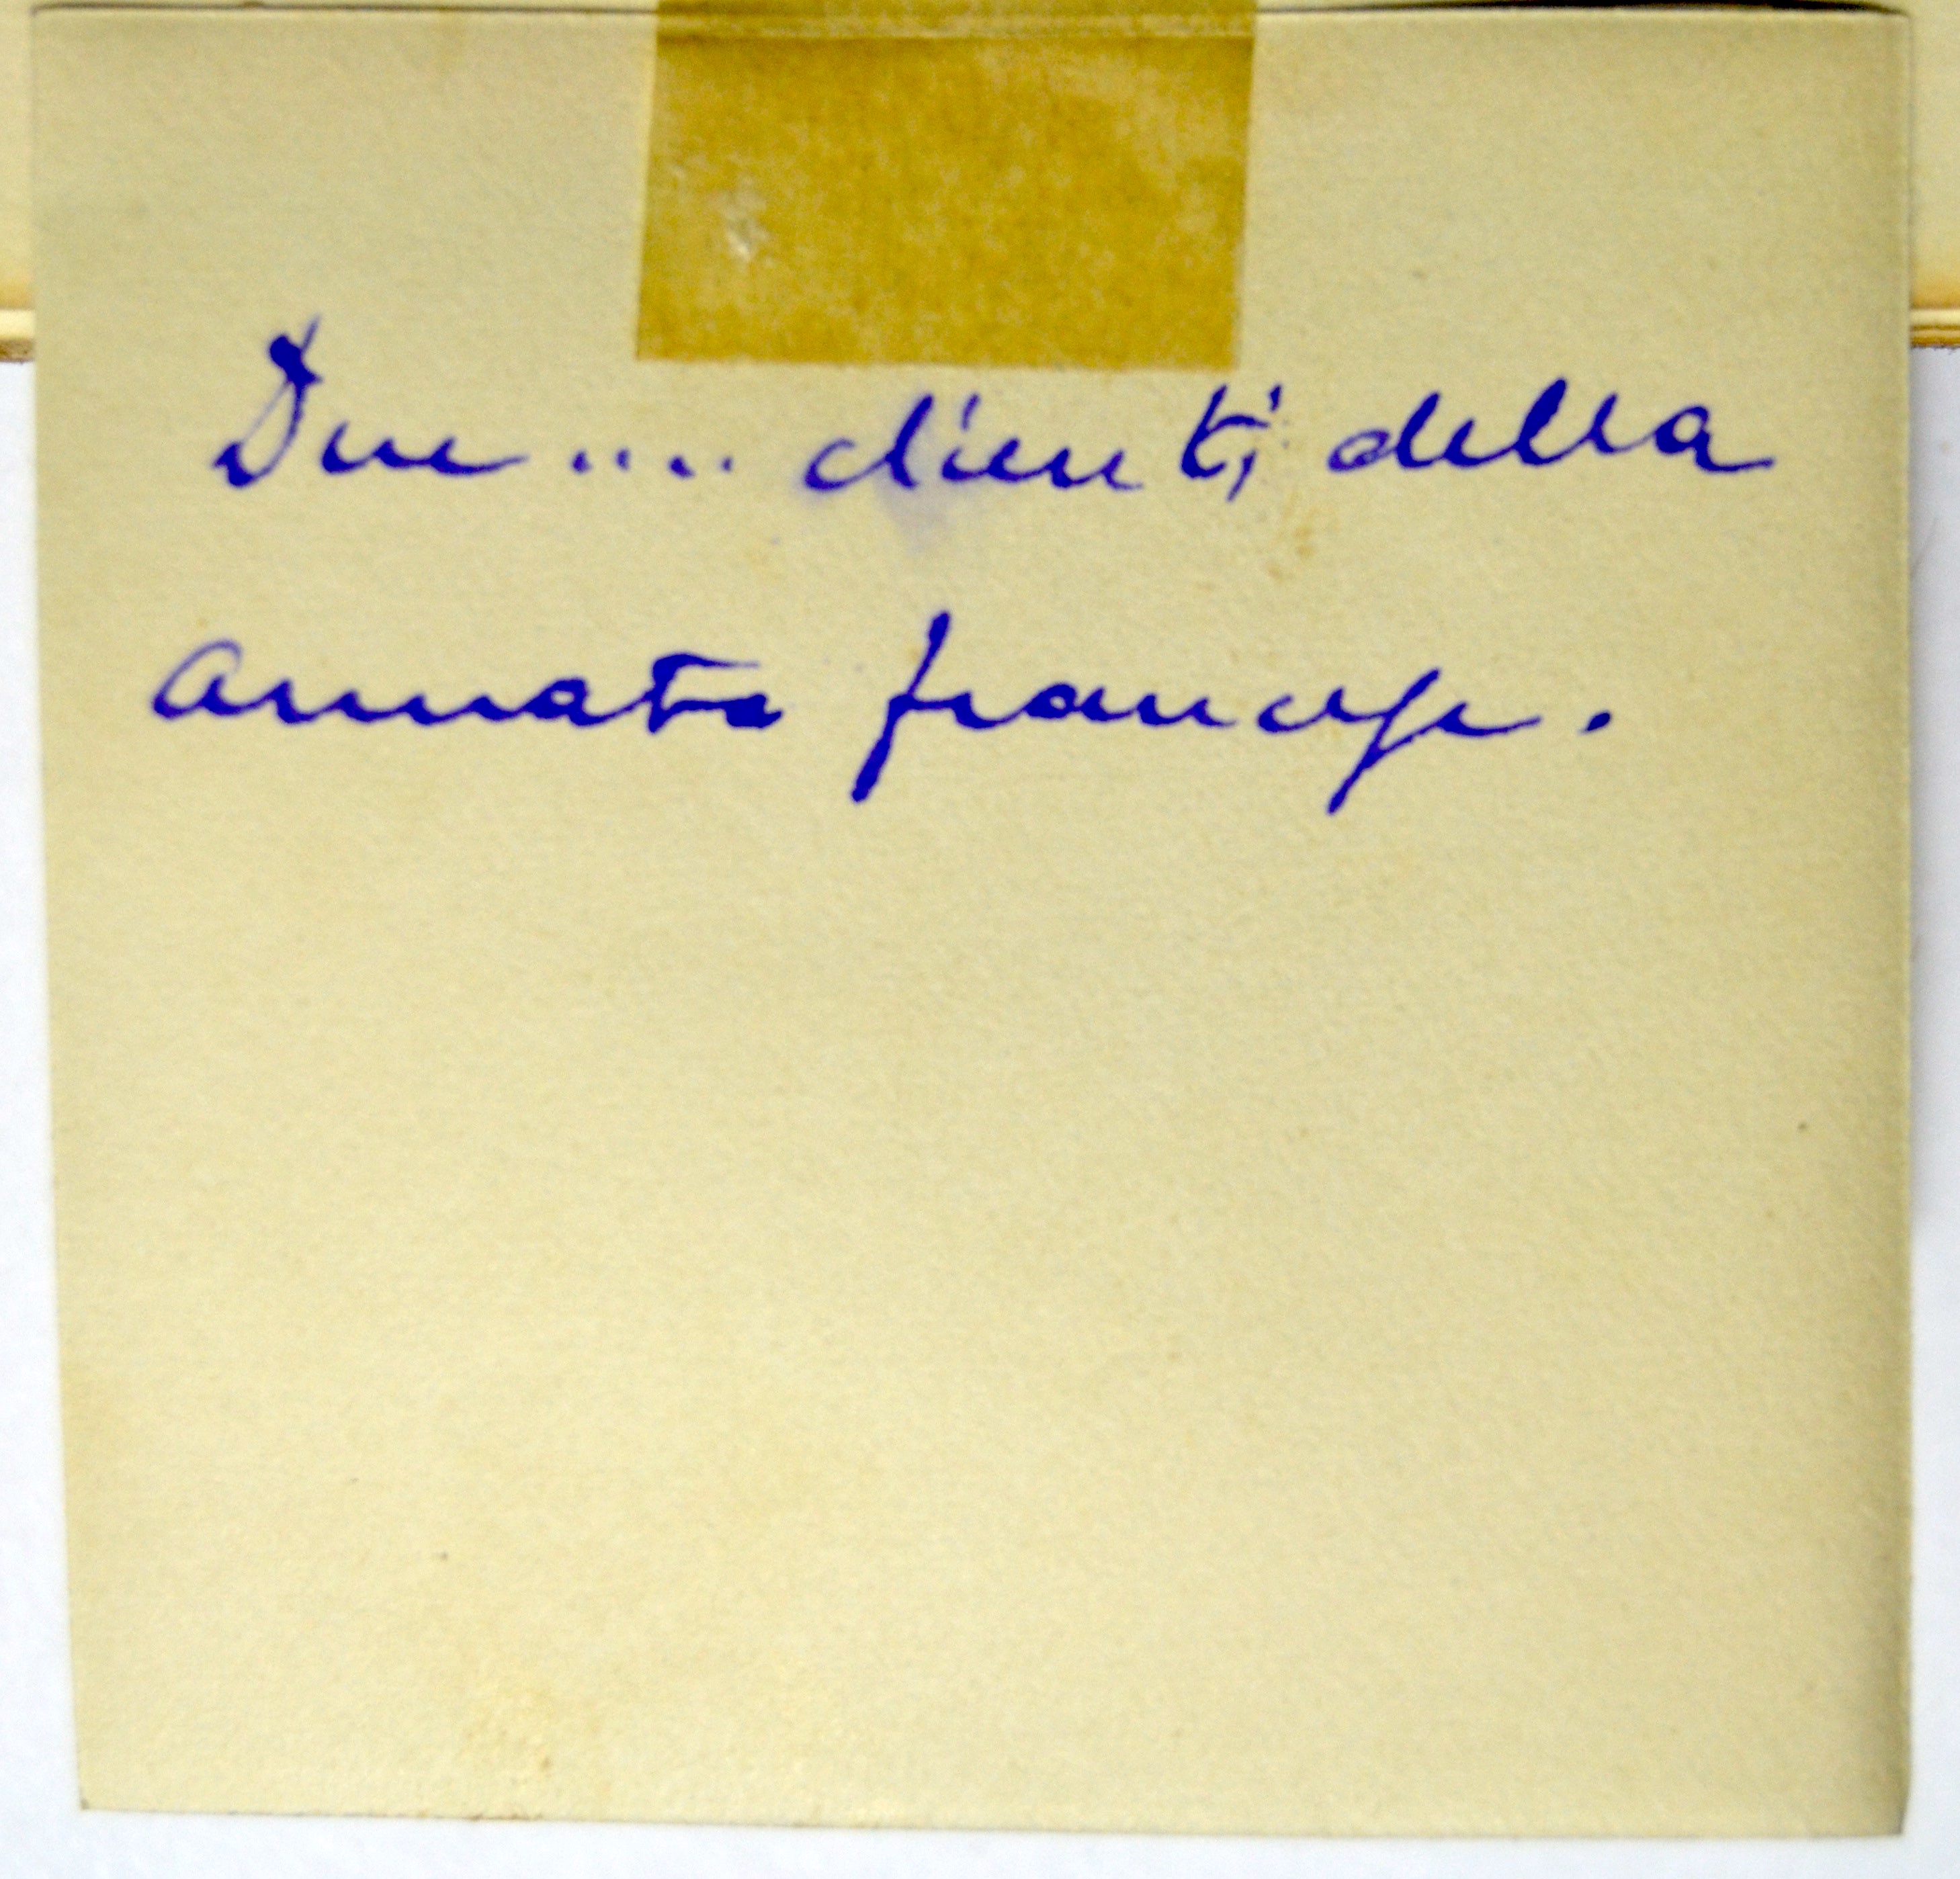 Due .... clienti della
armata francese.